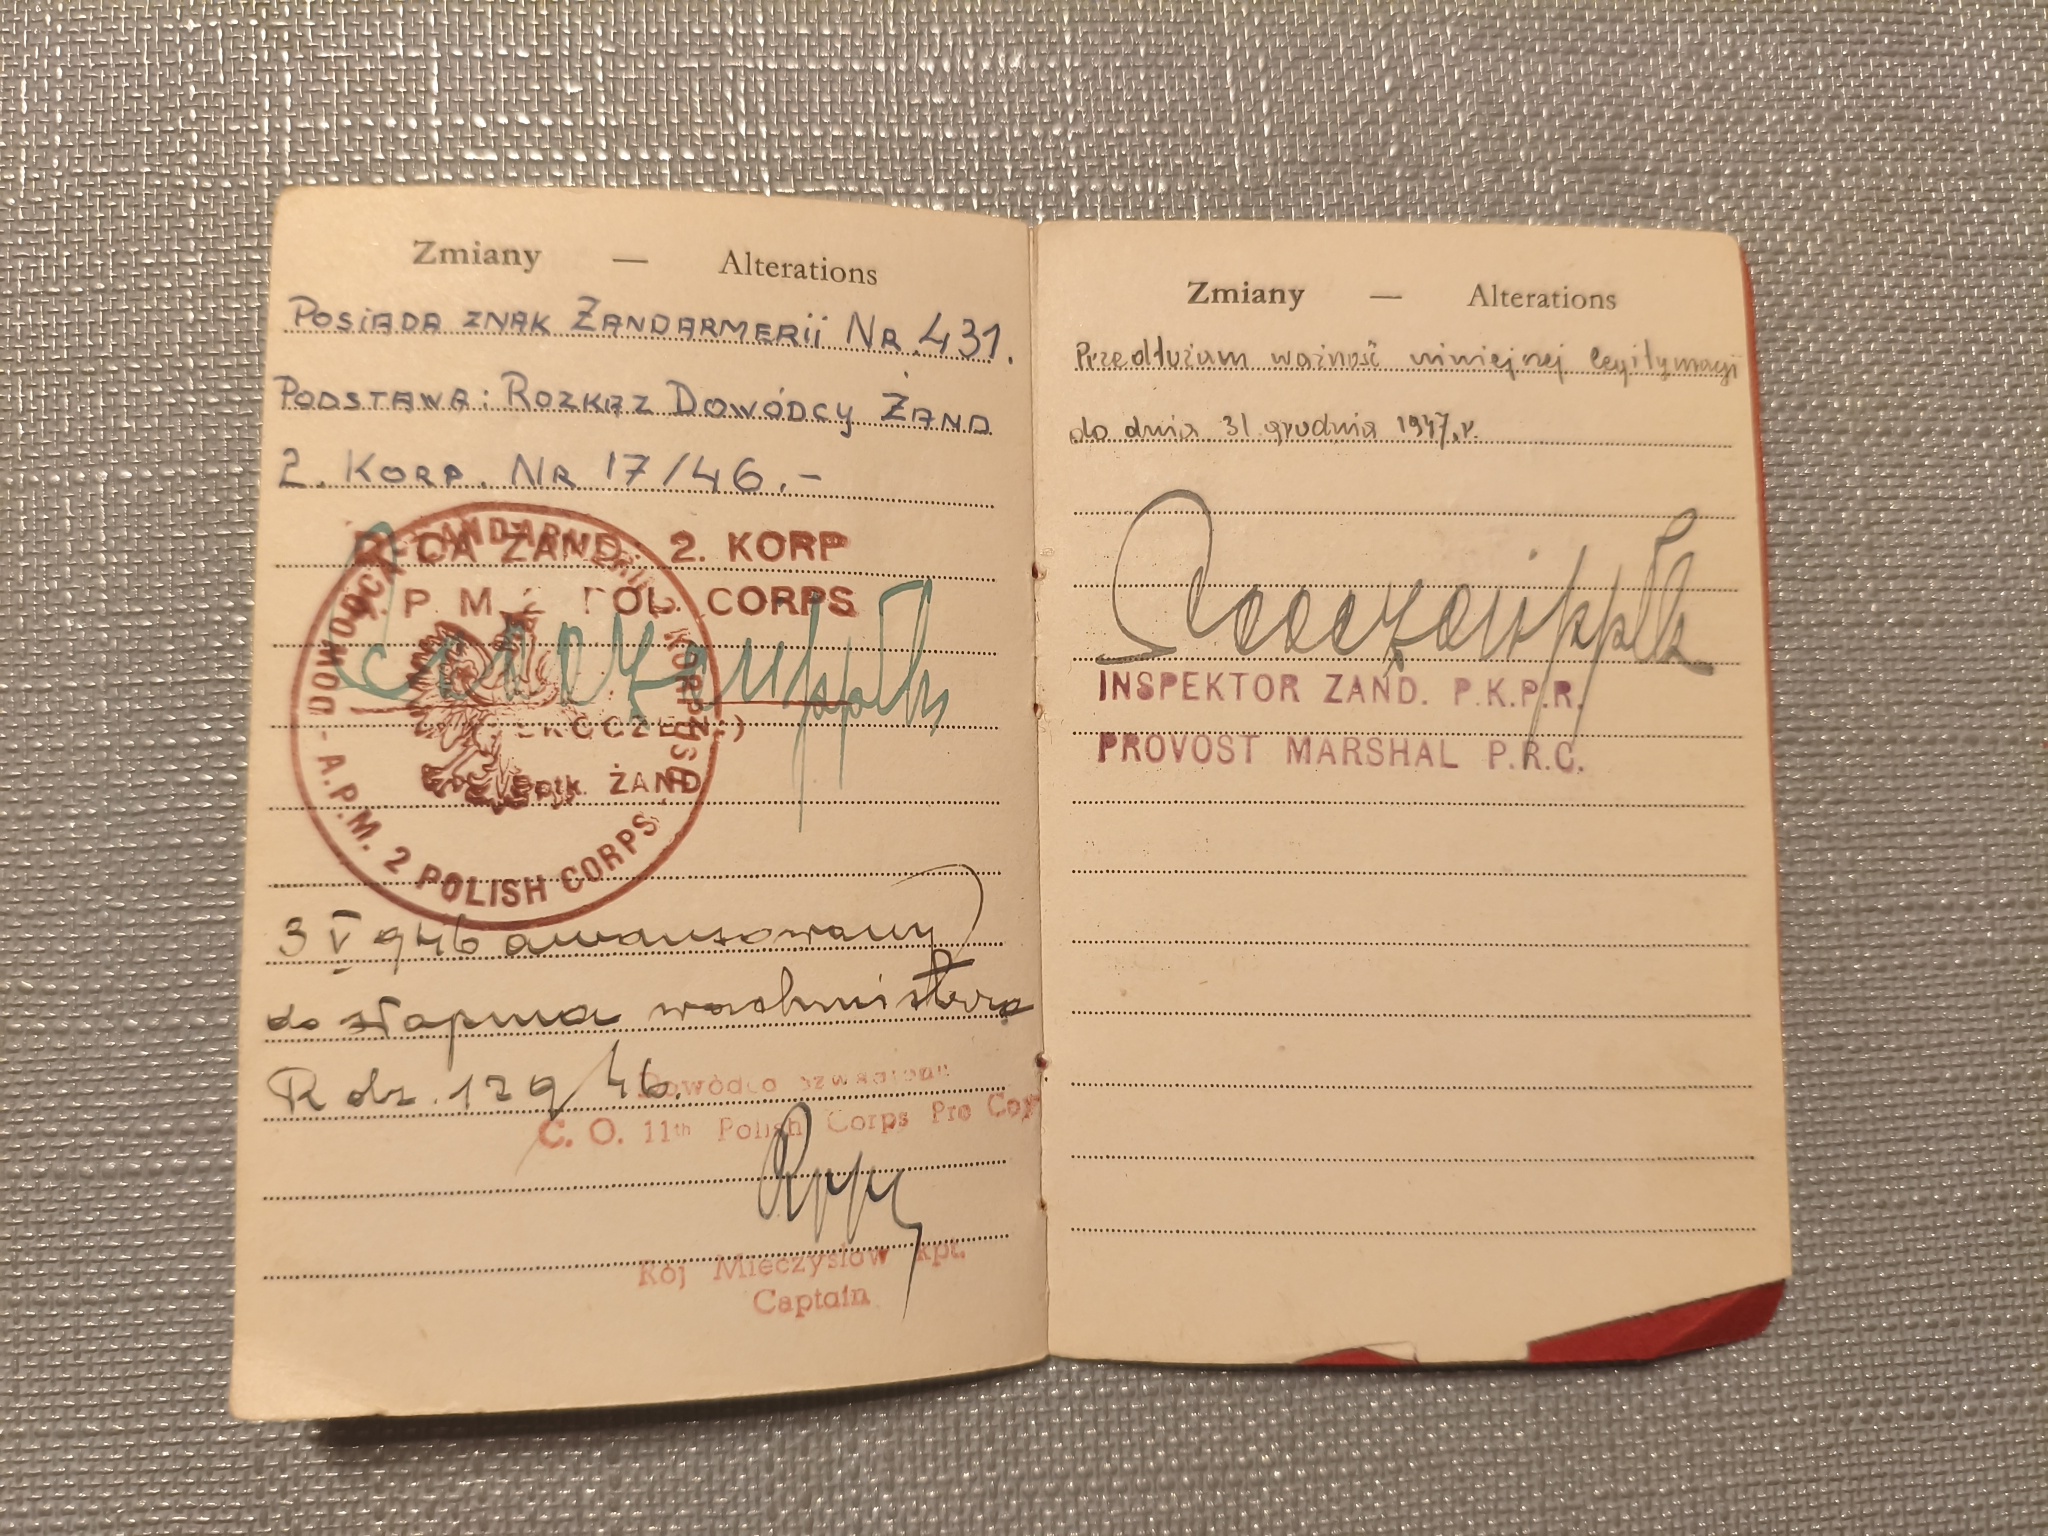 Zmiany — Alterations
POSIADA ZNAK ŻANDARMERII NR 431.
PODSTAWA: ROZKAZ DOWÓDCY ŻAND
2. KORP. NR 17/46.-
D-CA ŻAND. 2. KORP
A. P. M. 2 POL. CORPS
DOWÓDCA ŻANDARMERII 2 KORPUSU
- A.P.M. 2 POLISH CORPS
ppłk. ŻAND
3 V 946 awansowany
do stopnia wachmistrza
R dz. 129/46.
Dowódca szwadronu
C. O. 11th Polish Corps Pro Coy
Rój Mieczysław kpt.
Captain
Zmiany — Alterations
Przedłużam ważność niniejszej legitymacji
do dnia 31 grudnia 1947 r.
INSPEKTOR ŻAND. P.K.P.R.
PROVOST MARSHAL P.R.C.